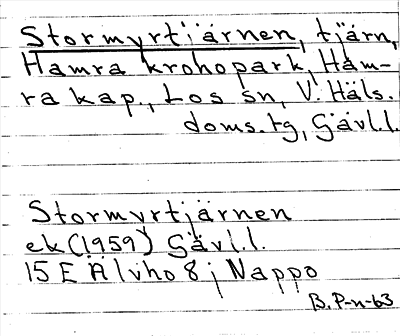 Stormyrtjärnen, tjärn,
Hamra kronopark, Ham-
ra kap., Los sn, V. Häls.
doms.tg, Gävl.l.
Stormyrtjärnen
ek (1959) Gävl.l.
15 E Älvho 8 j Nappo
B. P-n-63